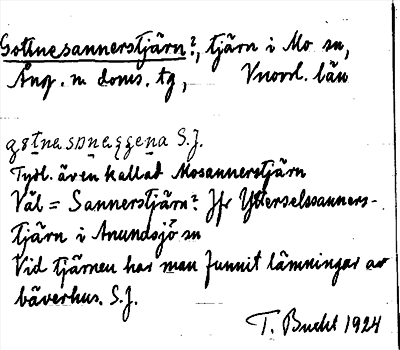 Gottnesannerstjärn?, tjärn i Mo sn,
Ång. n. doms. tg, Vnorrl. län
S.J.
Tydl. även kallad Mosannerstjärn
Väl = Sannerstjärn? Jfr Ytterselssanners-
tjärn i Anundsjö sn
Vid tjärnen har man funnit lämningar av
bäverhus. S.J.
T. Bucht 1924